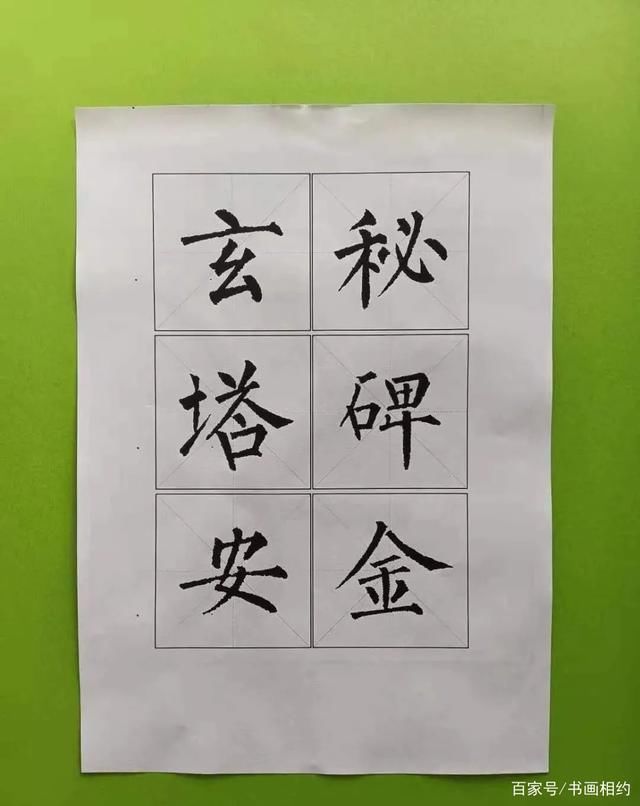 玄秘
塔碑
安金
百家号/书画相约